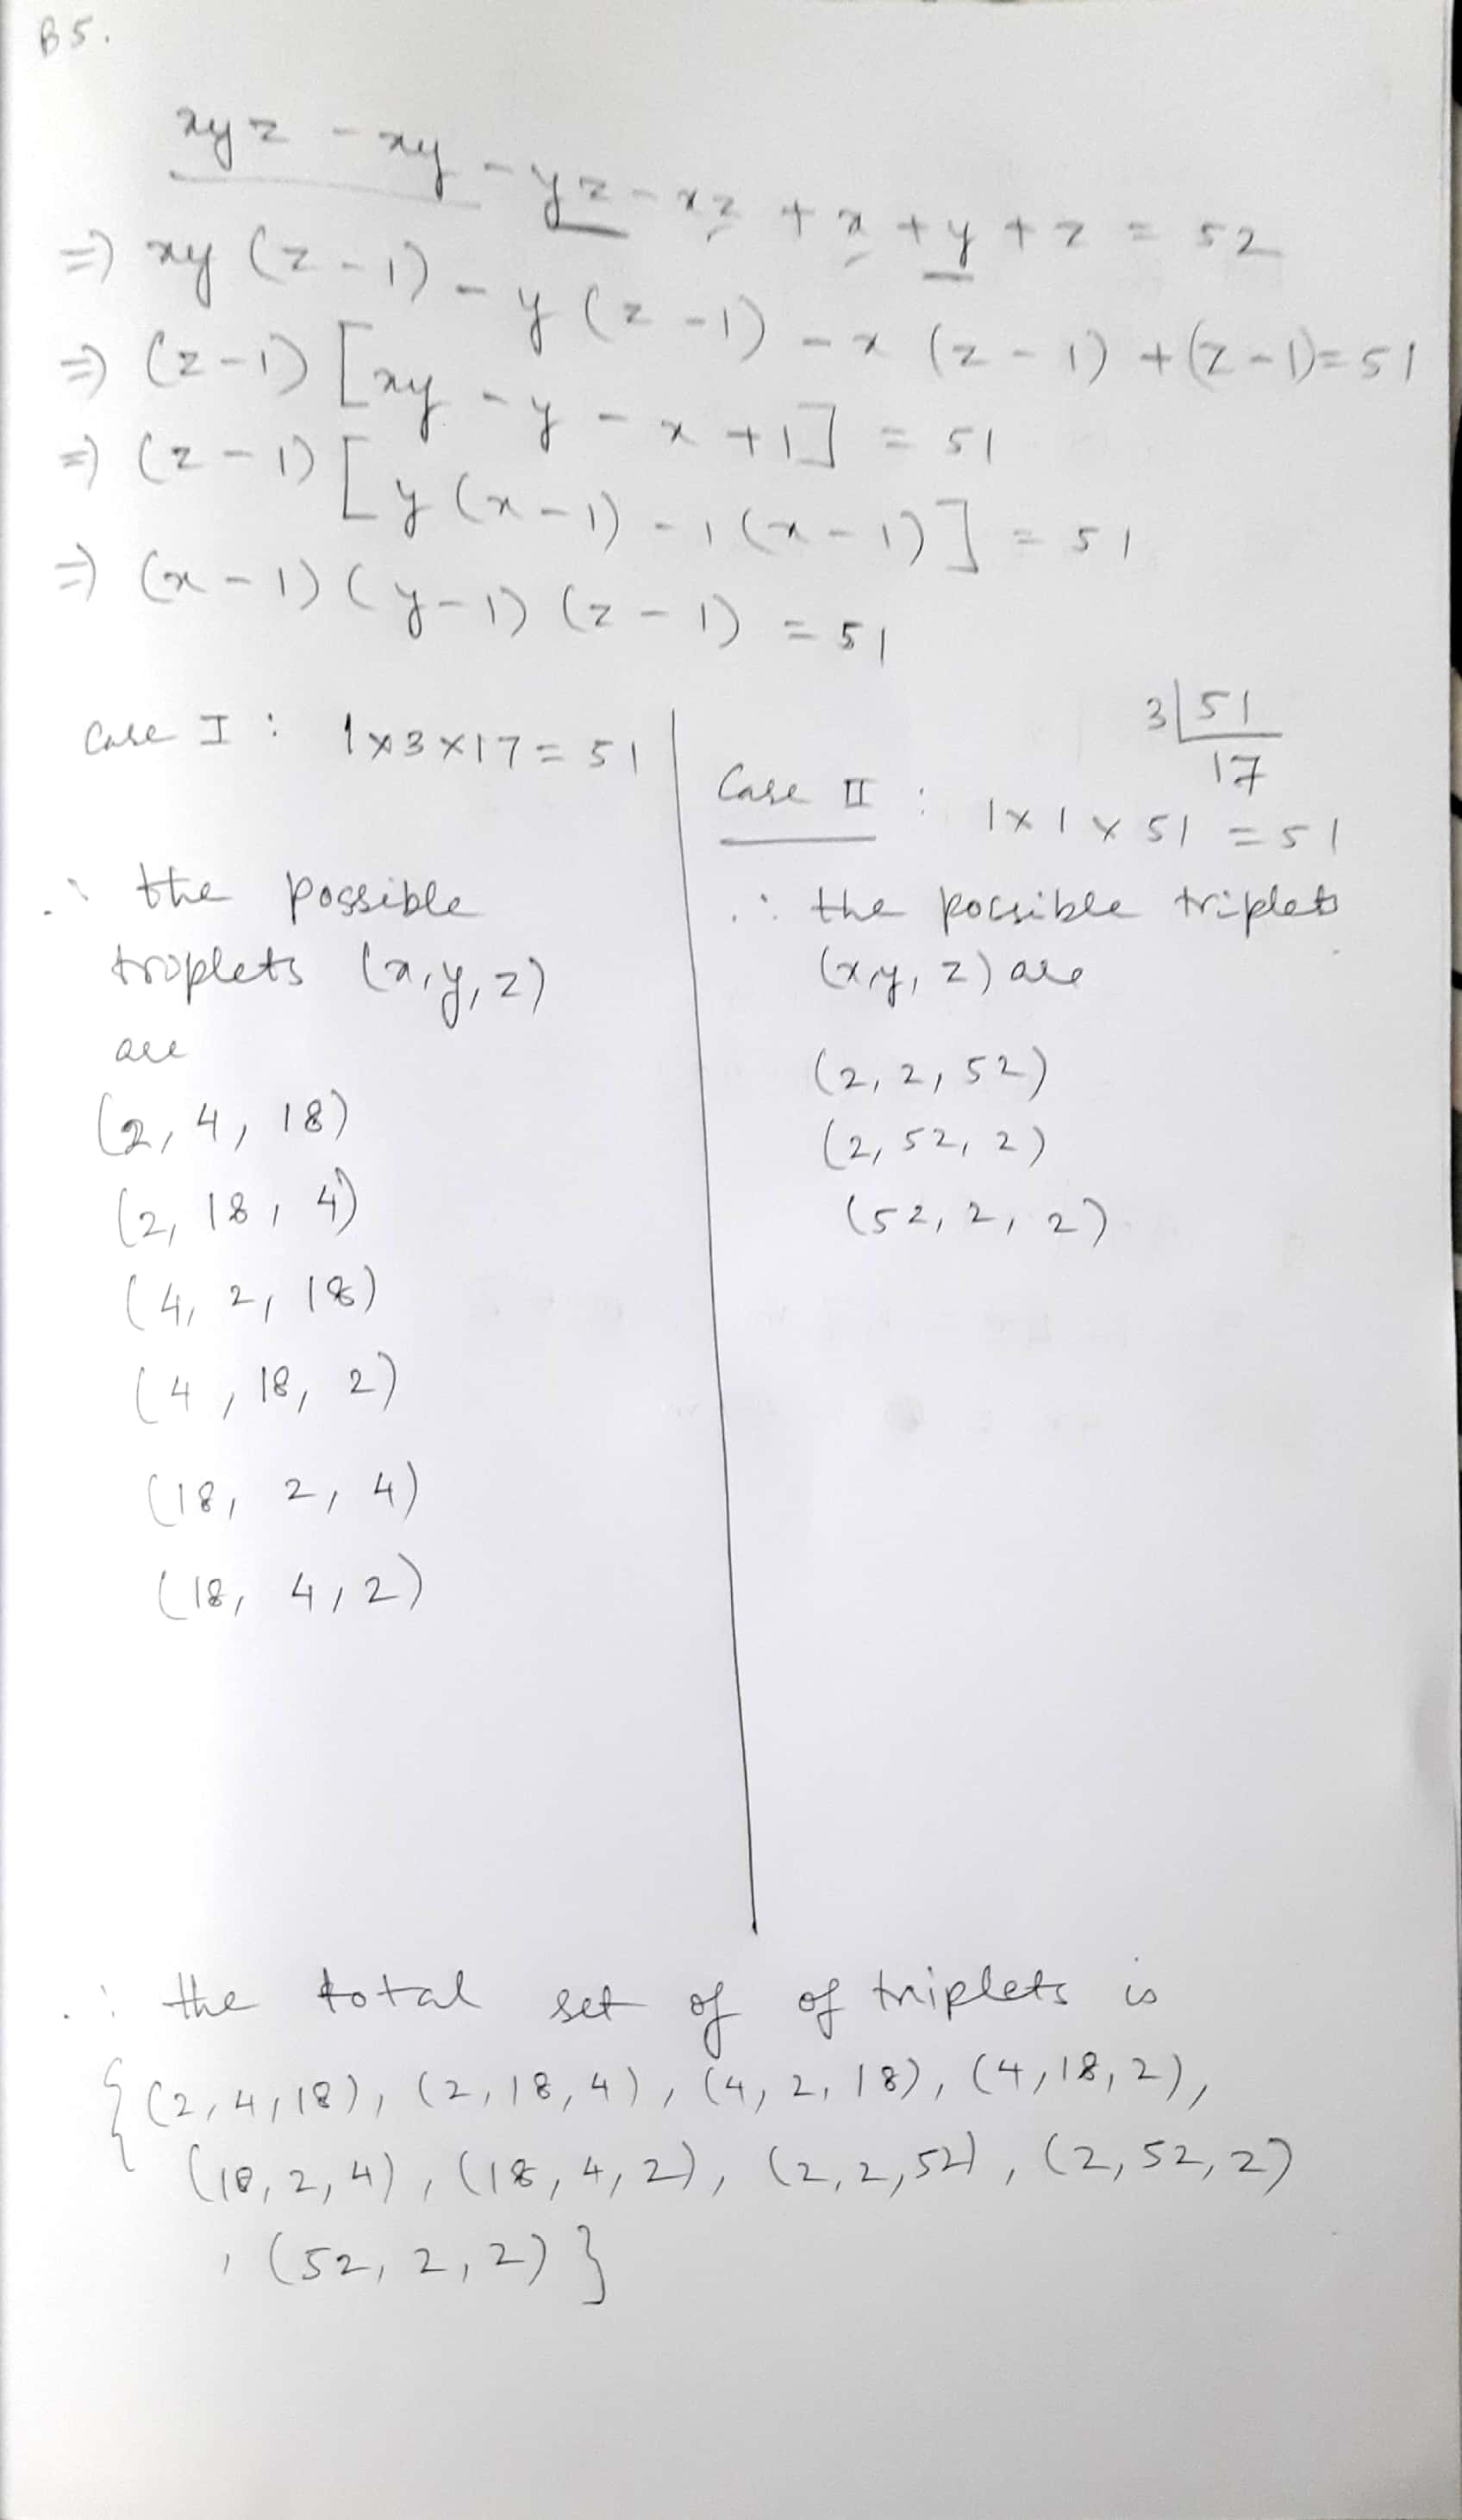 B5.
xyz - xy - yz - xz + x + y + z = 52
⇒ xy (z - 1) - y (z - 1) - x (z - 1) + (z - 1) = 51
⇒ (z - 1) [xy - y - x + 1] = 51
⇒ (z - 1) [y (x - 1) - 1 (x - 1)] = 51
⇒ (x - 1) (y - 1) (z - 1) = 51
3 | 51
17
Case I : 1 × 3 × 17 = 51
∴ the possible
triplets (x, y, z)
are
(2, 4, 18)
(2, 18, 4)
(4, 2, 18)
(4, 18, 2)
(18, 2, 4)
(18, 4, 2)
Case II : 1 × 1 × 51 = 51
∴ the possible triplets
(x, y, z) are
(2, 2, 52)
(2, 52, 2)
(52, 2, 2)
∴ the total set of of triplets is
{(2, 4, 18), (2, 18, 4), (4, 2, 18), (4, 18, 2),
(18, 2, 4), (18, 4, 2), (2, 2, 52), (2, 52, 2)
, (52, 2, 2)}